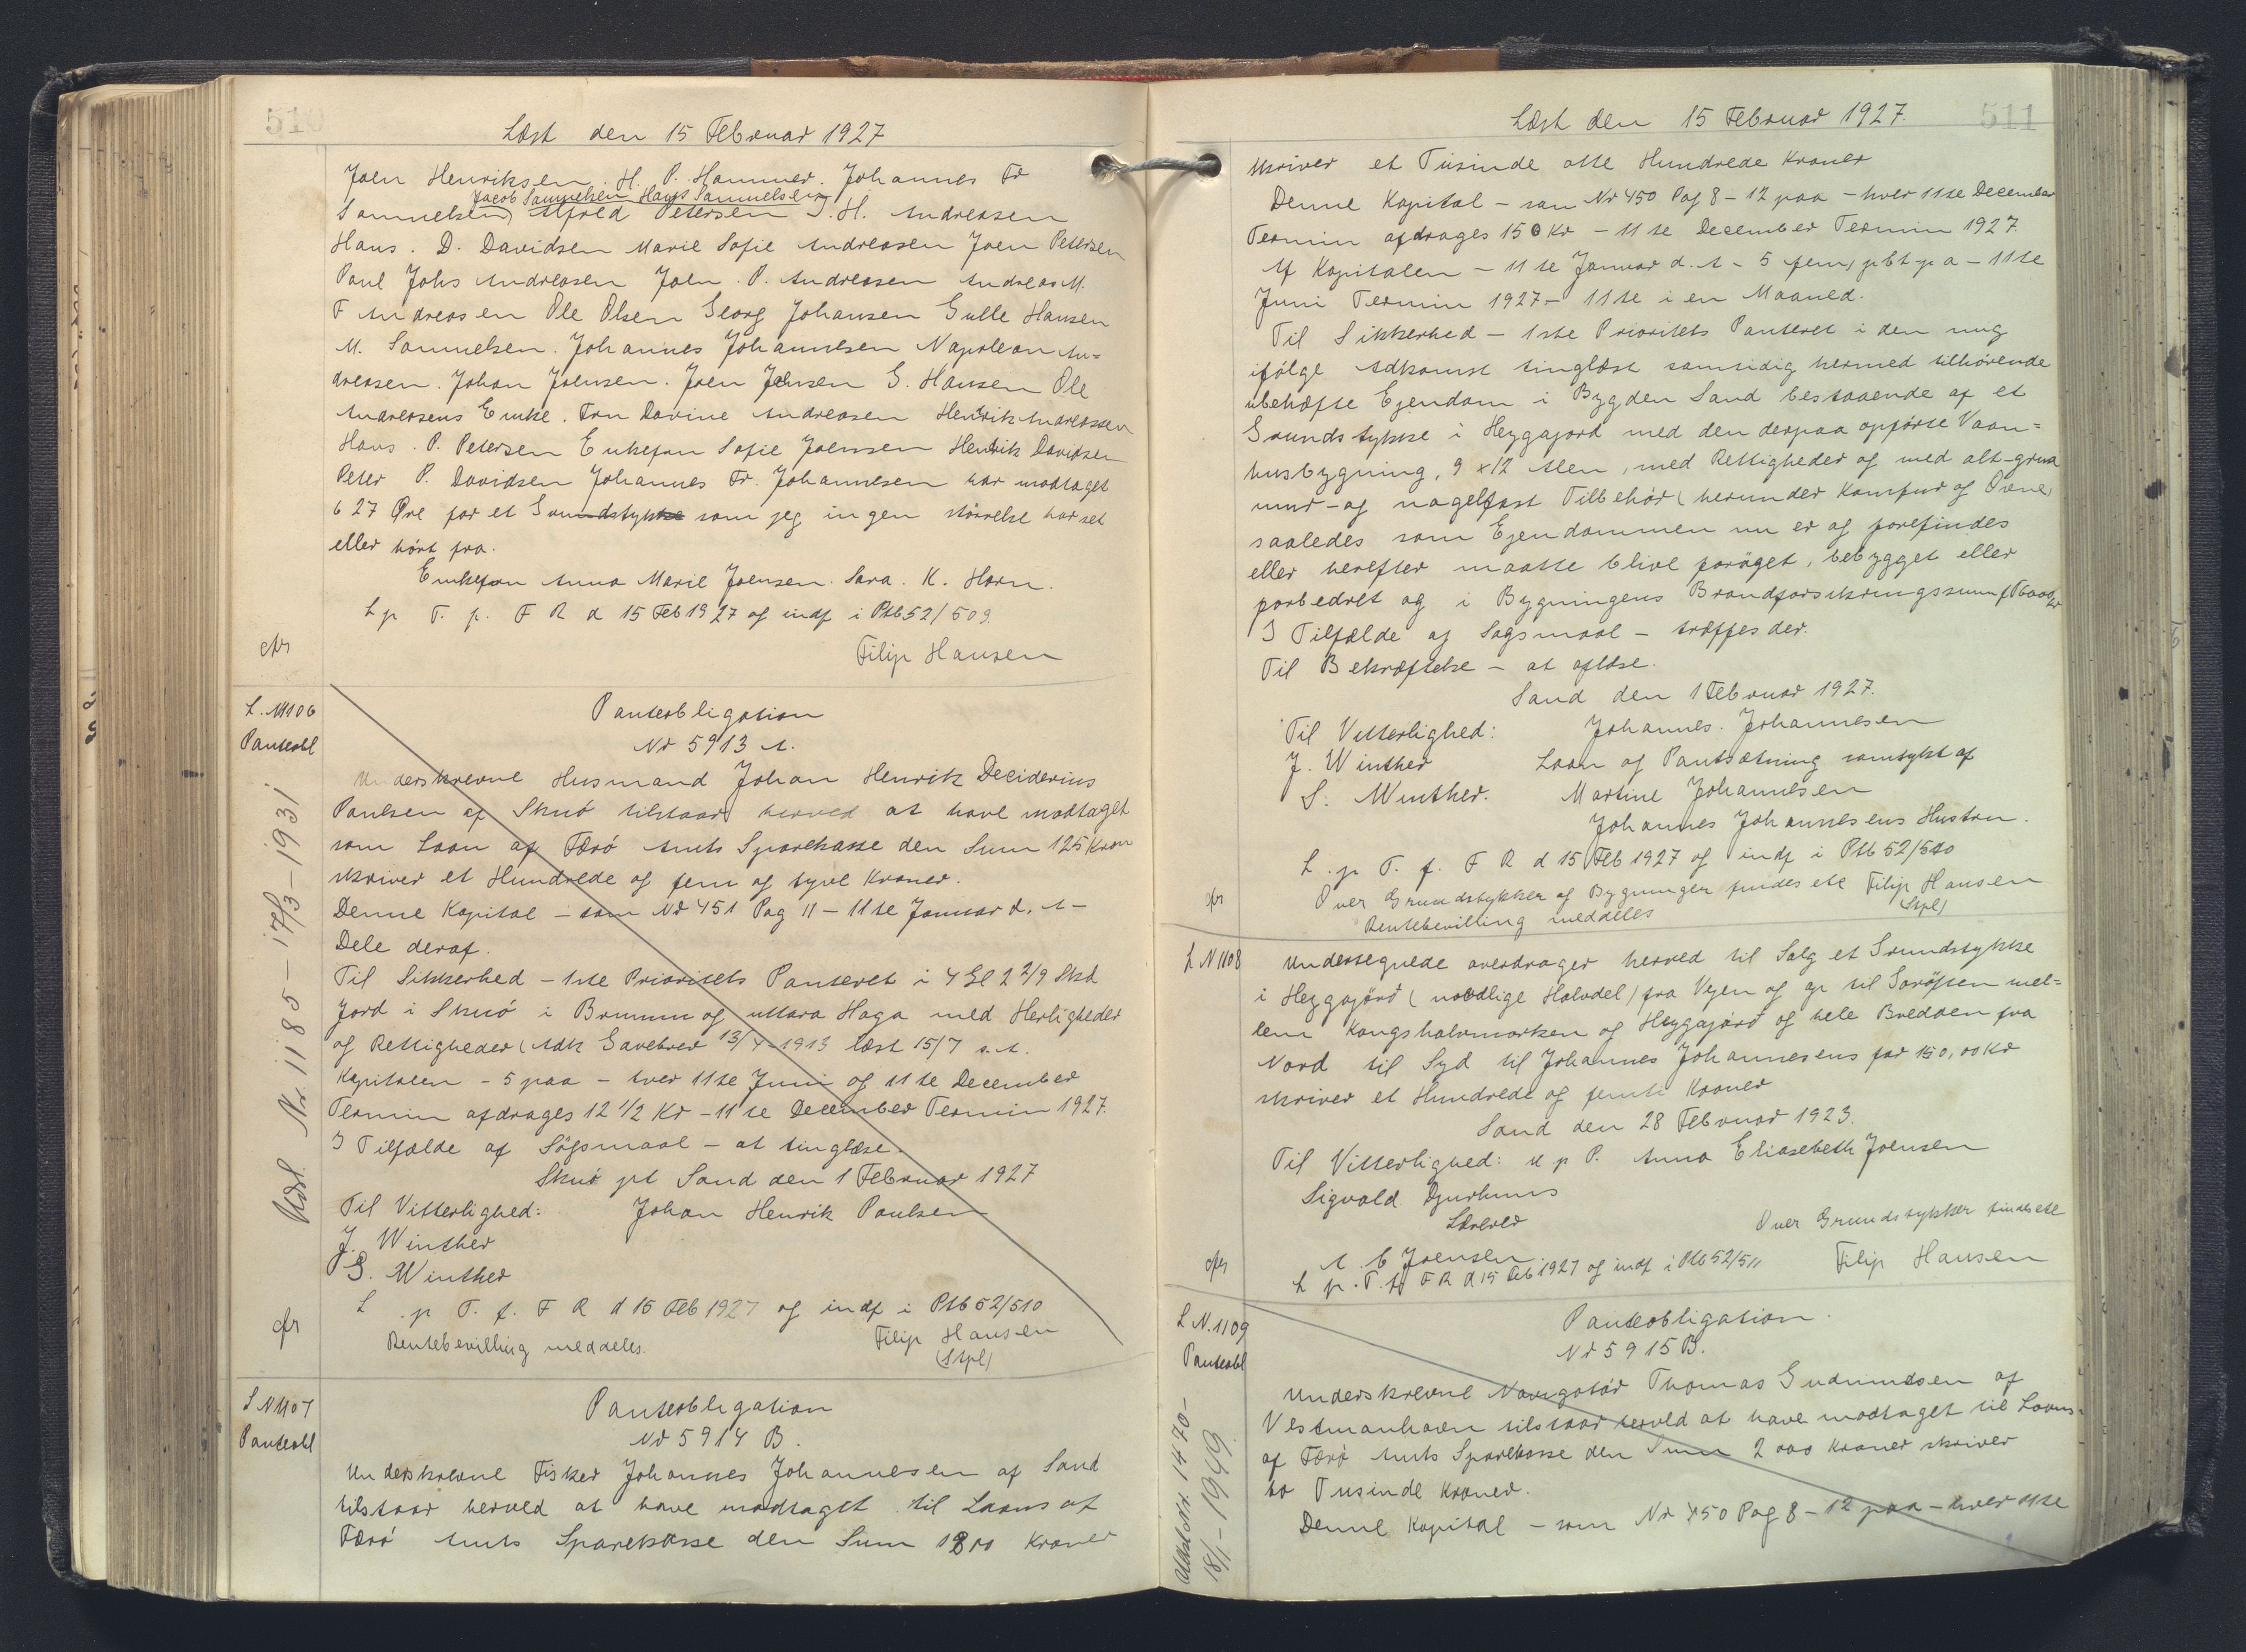 510
Læst den 15 Februar 1927
Joen Henriksen. H. P. Hammer. Johannes Fr
Jacob Samuelsen Hans Samuelsen
Samuelsen Alfred Petersen J. H. Andreasen
Hans. D. Davidsen Marie Sofie Andreasen Joen Petersen
Poul Johs Andreasen Joen. P. Andreasen Andreas M.
F Andreasen Ole Olsen Georg Johansen Gulle Hansen
M. Samuelsen. Johannes Johannesen Napoleon An=
dreasen. Johan Joensen. Joen Jensen G. Hansen Ole
Andreasens Enke. Fru Davine Andreasen Henrik Andreassen
Hans. P. Petersen Enkefru Sofie Joensen Hendrik Davidsen
Peter P. Davidsen Johannes Fr. Johannesen har modtaget
6 27 Øre for et Grundstykke som jeg ingen störrelse har set
eller hört fra.
Enkefru Anna Marie Joensen. Sara. K. Horn.
L p T. f. F R d 15 Feb 1927 og indf i Ptb 52/509.
cfr
Filip Hansen
L. N 1106
Panteobl
Panteobligation
Nr 5913 A.
Underskrevne Husmand Johan Henrik Deciderius
Poulsen af Skuö tilstaar herved at have modtaget
som Laan af Færö Amts Sparekasse den Sum 125 Kroner
skriver et Hundrede og fem og tyve Kroner.
Denne Kapital – som Nr 451 Pag 11 – 11te Januar d. A –
Dele deraf.
Til Sikkerhed – 1ste Prioritets Panteret i 4 Gl 2 2/9 Skd
Jord i Skuö i Brumm og uttara Haga med Herligheder
og Rettigheder (Adk Gavebrev 13/4 – 1913 læst 15/7 s. A.
Kapitalen – 5 paa – hver 11te Juni og 11te December
Termin afdrages 12 1/2 Kr – 11te December Termin 1927.
I Tilfælde af Sögsmaal – at tinglæse.
Skuö pt Sand den 1 Februar 1927
Til Vitterlighed: Johan Henrik Poulsen
J. Winther
S. Winther
L p T. f. F R d 15 Feb 1927 og indf i Ptb 52/510
cfr
Rentebevilling meddeles. Filip Hansen
(Stpl)
Nr. 1185 – 17/3 – 1931
L N 1107
Panteobl
Panteobligation
Nr 5914 B.
Underskrevne Fisker Johannes Johannesen af Sand
tilstaar herved at have modtaget til Laans af
Færö Amts Sparekasse den Sum 1800 Kroner
Læst den 15 Februar 1927.
511
skriver et Tusinde otte Hundrede Kroner
Denne Kapital – som Nr 450 Pag 8 – 12 paa – hver 11te December
Termin afdrages 150 Kr – 11te December Termin 1927.
Af Kapitalen – 11te Januar d. A – 5 fem pCt p a – 11te
Juni Termin 1927 – 11te i en Maaned.
Til Sikkerhed – 1ste Prioritets Panteret i den mig
ifölge Adkomst tinglæst samtidig hermed tilhörende
ubehæfte Ejendom i Bygden Sand bestaaende af et
Grundstykke i Heygajord med den derpaa opförte Vaan=
husbygning, 9 x 12 Alen, med Rettigheder og med alt – grund
mur – og nagelfast Tilbehör (herunder Komfur og Ovne)
saaledes som Ejendommen nu er og forefindes
eller herefter maatte blive foröget, bebygget eller
forbedret og i Bygningens Brandforsikringssum
I Tilfælde af Sagsmaal – træffes der.
Til Bekræftelse – at aflæse.
Sand den 1 Februar 1927.
Til Vitterlighed: Johannes. Johannesen
J. Winther Laan og Pantsætning samtykt af
S. Winther. Martine Johannesen
Johannes Johannesens Hustru.
L. p T. f. F R d 15 Feb 1927 og indf i Ptb 52/510
cfr
Over Grundstykker og Bygninger findes etc Filip Hansen
Rentebevilling meddeles (Stpl)
L N 1108
Undertegnede overdrager herved til Salg et Grundstykke
i Heygajörd (nordlige Halvdel) fra Vejen og op til Gröften mel=
lem Kongshalvmarken og Heygajörd og hele Bredden fra
Nord til Syd til Johannes Johannesens for 150,00 Kr
skriver et Hundrede og femti Kroner
Sand den 28 Februar 1923.
Til Vitterlighed: m p P. Anna Eliasebeth Joensen
Sigvald Djurhuus
Lærer
Over Grundstykker findes etc
A. C Joensen
cfr
L p. T. f. F R d 15 Feb 1927 og indf i Ptb 52/511 Filip Hansen
L N. 1109
Panteobl
Panteobligation.
Nr 5915 B.
Underskrevne Navigatör Thomas Gudmundsen af
Vestmanhavn tilstaar herved at have modtaget til Laans
af Færö Amts Sparekasse den Sum 2000 Kroner skriver
to Tusinde Kroner.
Denne Kapital – som Nr 450 Pag 8 – 12 paa – hver 11te
Udslettet Nr. 1470 –
18/1 – 1949